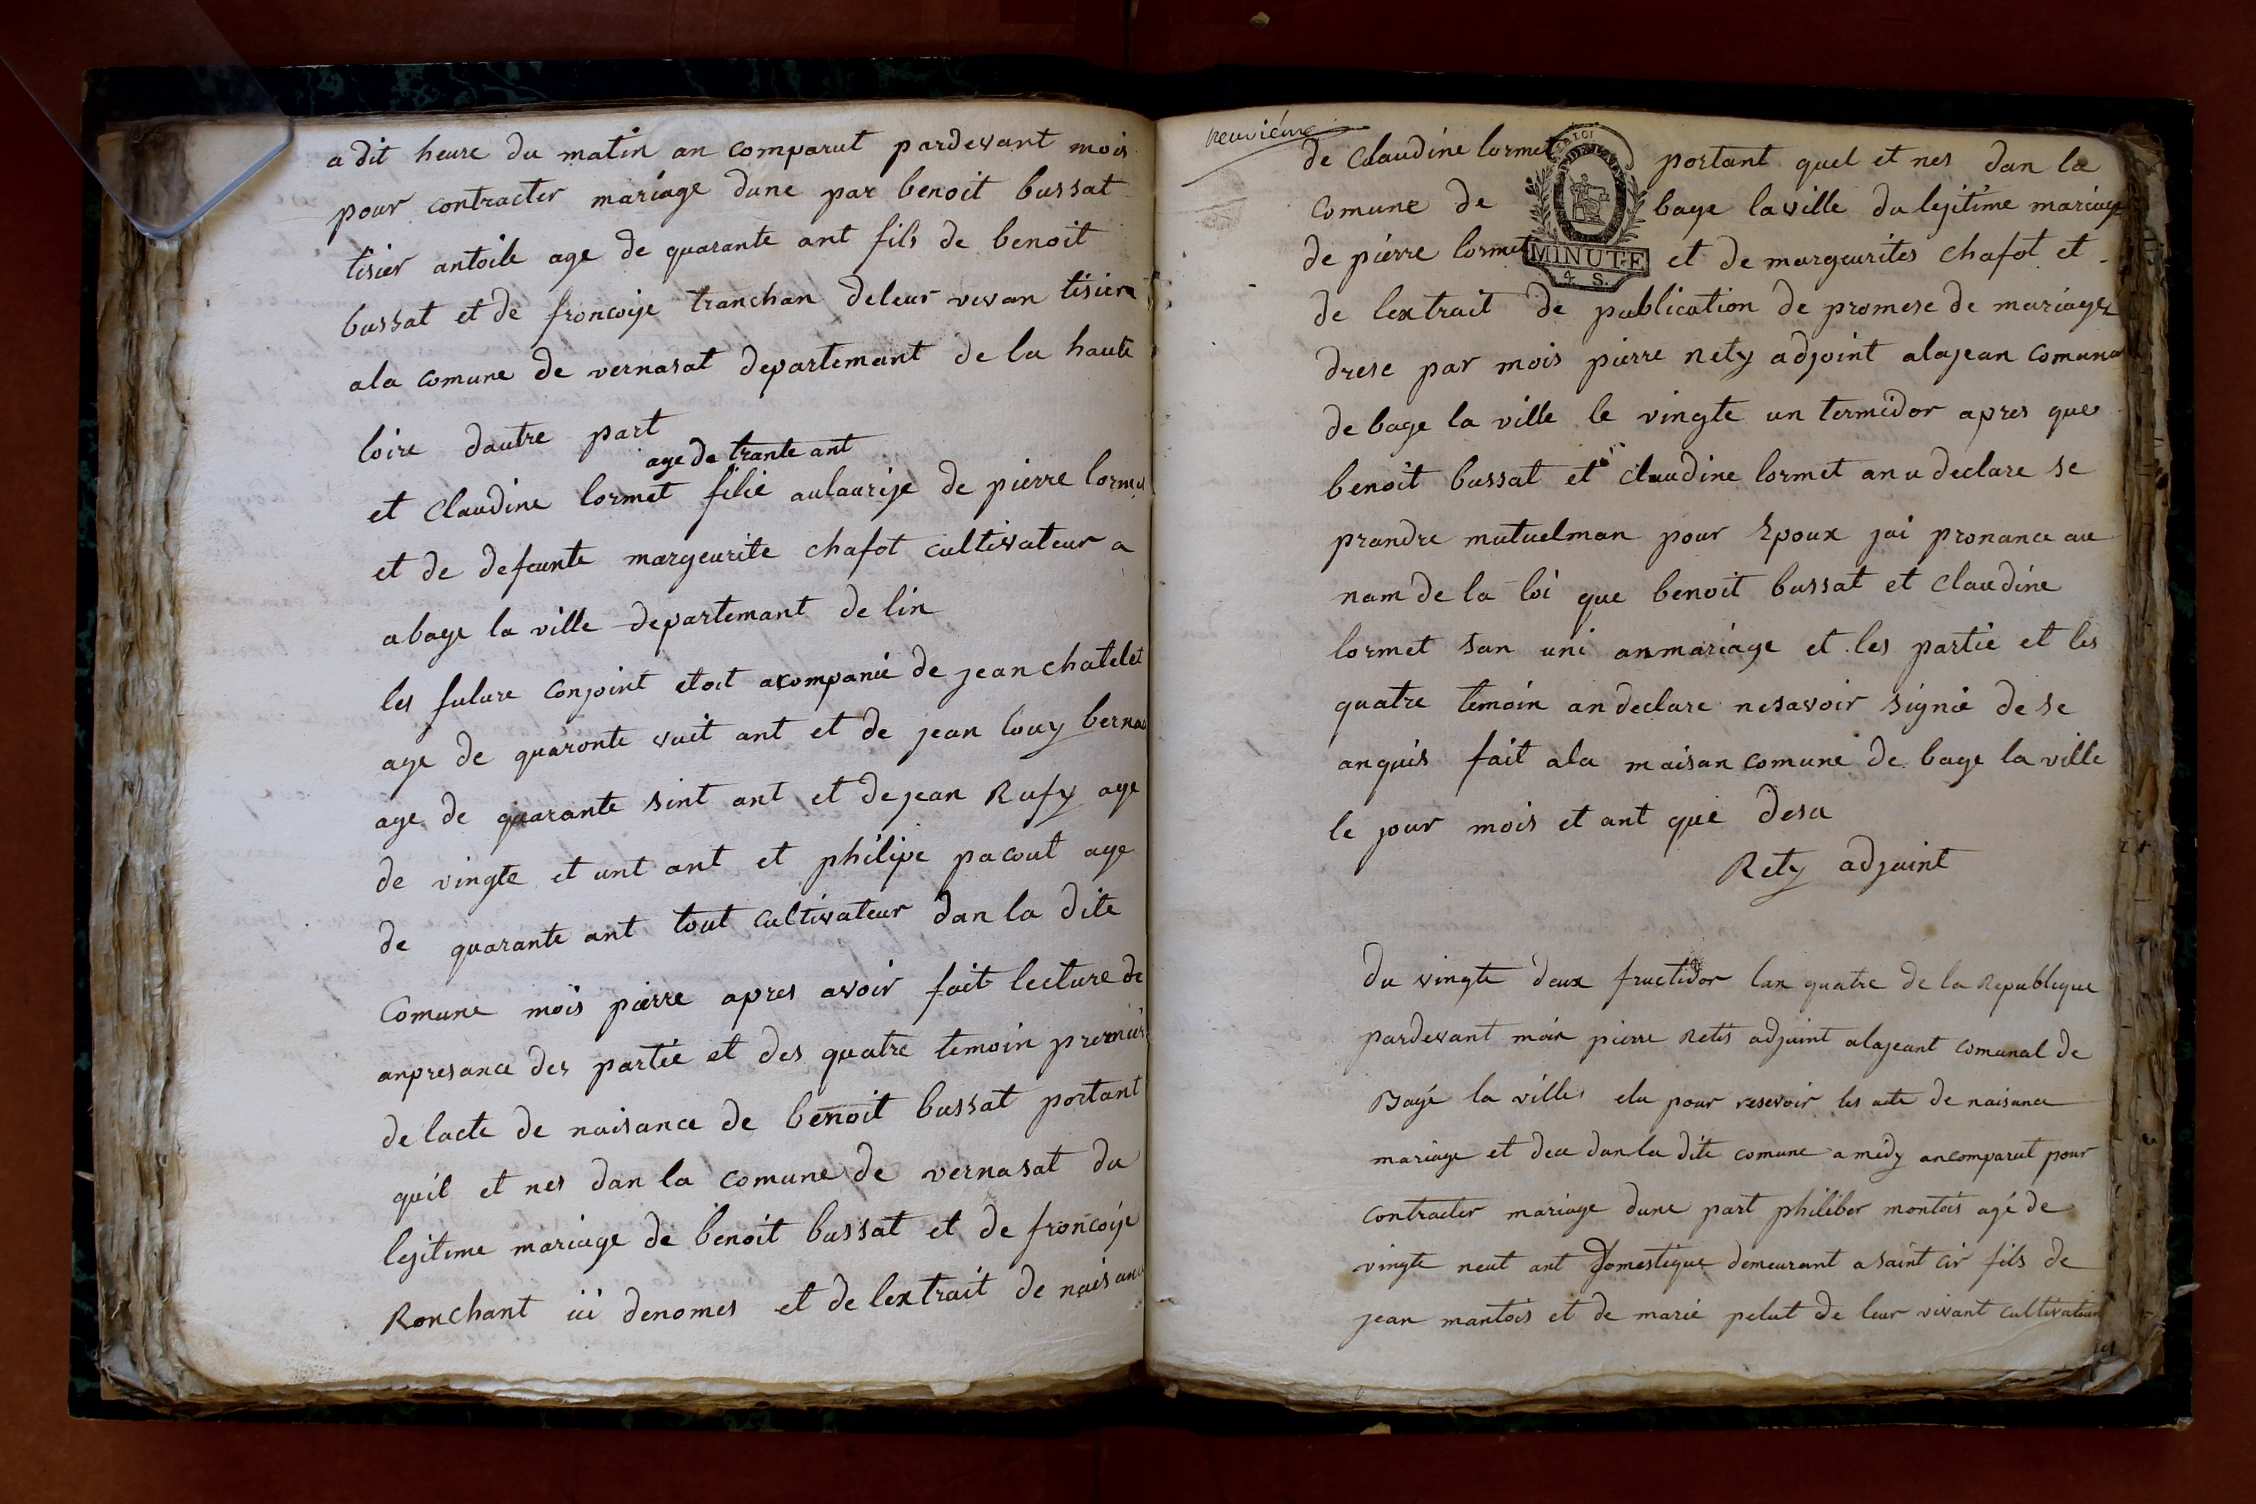 a dit heure du matin an comparut pardevant mois
pour contracter mariage dune par benoit bussat
tisier antoile age de quarante ant fils de benoit
bussat et de froncoije tranchan deleur vivan tisier
a la comune de vernasat departemant de la haute
loire dautre part
age de trante ant
et Claudine lormet filie aulaurije de pierre lormet
et de defeunte margeurite chafot cultivateur a
abage la ville departemant de lin
les future conjoint etoit acompanié de jean chatelet
age de quaronte vuit ant et de jean louy berna
age de quarante sint ant et de jean Rufy age
de vingte et unt ant et philipe pacout age
de quarante ant tout cultivateur dan la dite
Comune mois pierre apres avoir fait lecture de
anpresance des partie et des quatre temoin premier
de lacte de naisance de benoit bussat portant
quil et nes dan la comune de vernasat du
lejitime mariage de benoit bussat et de froncoije
Ronchant ici denomes et de lextrait de naisance
neuviéme
de Claudine lormet portant quel et nes dan la
Comune de bage laville du lejitime mariage
de pierre lormet et de margeurites chafot et
LOI
MINUTE
4 S.
de lextrait de publication de promese de mariages
drese par mois pierre rety adjoint alajean comuna
de bage la ville le vingte un termidor apres que
benoit bussat et Claudine lormet an u declare se
prandre mutuelman pour Epoux jai pronance au
nam de la loi que benoit bussat et Claudine
lormet san uni anmariage et les partie et les
quatre temoin an declare nesavoir signié de se
anquis fait ala maisan comune de bage la ville
le jour mois et ant que desu
Rety adjoint
du vingte deux fructidor lan quatre de la Republique
pardevant moir pierre Retis adjuint alajeant comunal de
Bagé la ville elu pour resevoir les acte de naisance
mariage et dea dan la dite comune a midy ancomparut pour
contracter mariage dune part philiber montois agé de
vingte neut ant Domestique demeurant a saint cir fils de
jean mantois et de marie pelut de leur vivant cultivateur